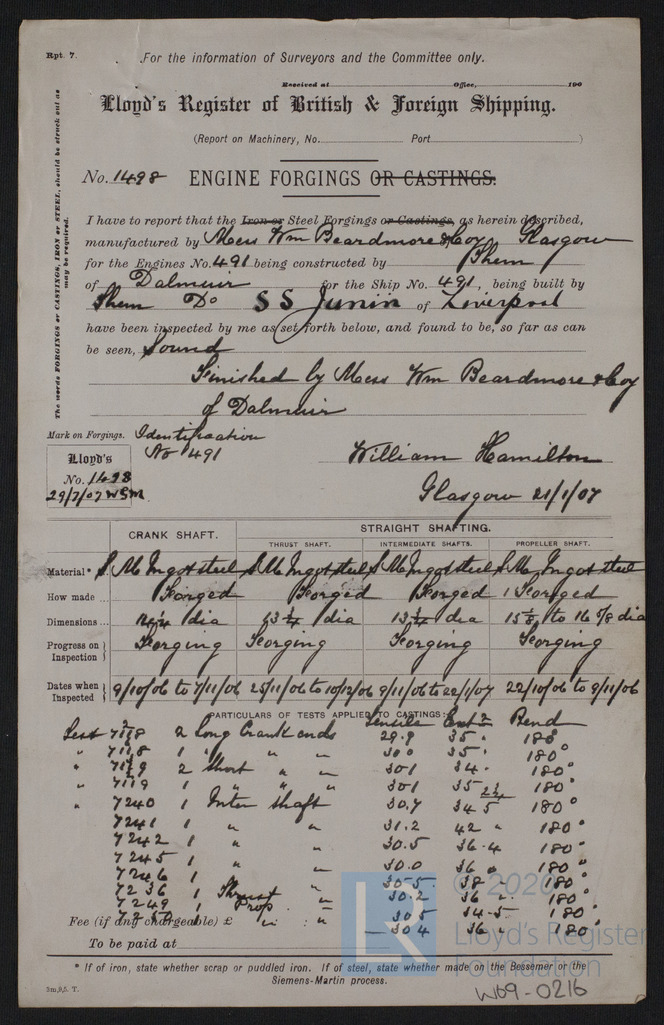 Rpt. 7.
For the information of Surveyors and the Committee only.
Received at Office, 190
Lloyd's Register of British & Foreign Shipping.
(Report on Machinery, No. Port )
The words FORGINGS or CASTINGS, IRON or STEEL, should be struck out as may be required.
No. 1498 ENGINE FORGINGS OR CASTINGS.
I have to report that the Iron or Steel Forgings or Castings, as herein described,
manufactured by Mess Wm Beardmore & Coy Glasgow
for the Engines No. 491 being constructed by Them
of Dalmuir for the Ship No. 491, being built by
Them Do SS Junin of Liverpool
have been inspected by me as set forth below, and found to be, so far as can
be seen, Sound
Finished by Mess Wm Beardmore & Coy
of Dalmuir
Mark on Forgings. Identification
No 491
Lloyd's
No. 1498
29/7/07 WSM
William Hamilton
Glasgow 21/1/07
CRANK SHAFT. STRAIGHT SHAFTING.
THRUST SHAFT. INTERMEDIATE SHAFTS. PROPELLER SHAFT.
Material* S M Ingot steel S M Ingot steel S M Ingot steel S M Ingot steel
How made ... Forged Forged Forged Forged
Dimensions ... dia 13 1/4 dia 13 1/4 dia to 16 5/8 dia
Progress on Inspection Forging Forging Forging Forging
Dates when Inspected 9/10/06 to 7/11/06 25/11/06 to 10/12/06 9/11/06 to 22/1/07 22/10/06 to 9/11/06
PARTICULARS OF TESTS APPLIED TO CASTINGS: Tensile Ext Bend
Test 2 Long Crank ends 29.9 35 " 180°
" 1 " " " 30.0 35 " 180°
" 2 Short " " 30.1 34 " 180°
" 7119 1 " " " 30.1 35 180°
" 7240 1 Inter shaft 30.7 34.5 180°
7241 1 " " 31.2 42 " 180°
7242 1 " " 30.5 36.4 180°
7245 1 " " 30.0 36 " 180°
7246 1 " " 30.5 38 " 180°
7236 1 Thrust " 30.2 36 " 180°
7249 1 Prop " 30.5 34.5 180°
1 " " 30.4 36 " 180°
Fee (if any chargeable) £ : :
To be paid at
* If of iron, state whether scrap or puddled iron. If of steel, state whether made on the Bessemer or the
Siemens-Martin process.
3m,9,5. T.
© 2020
Lloyd's Register
Foundation
W09-0216